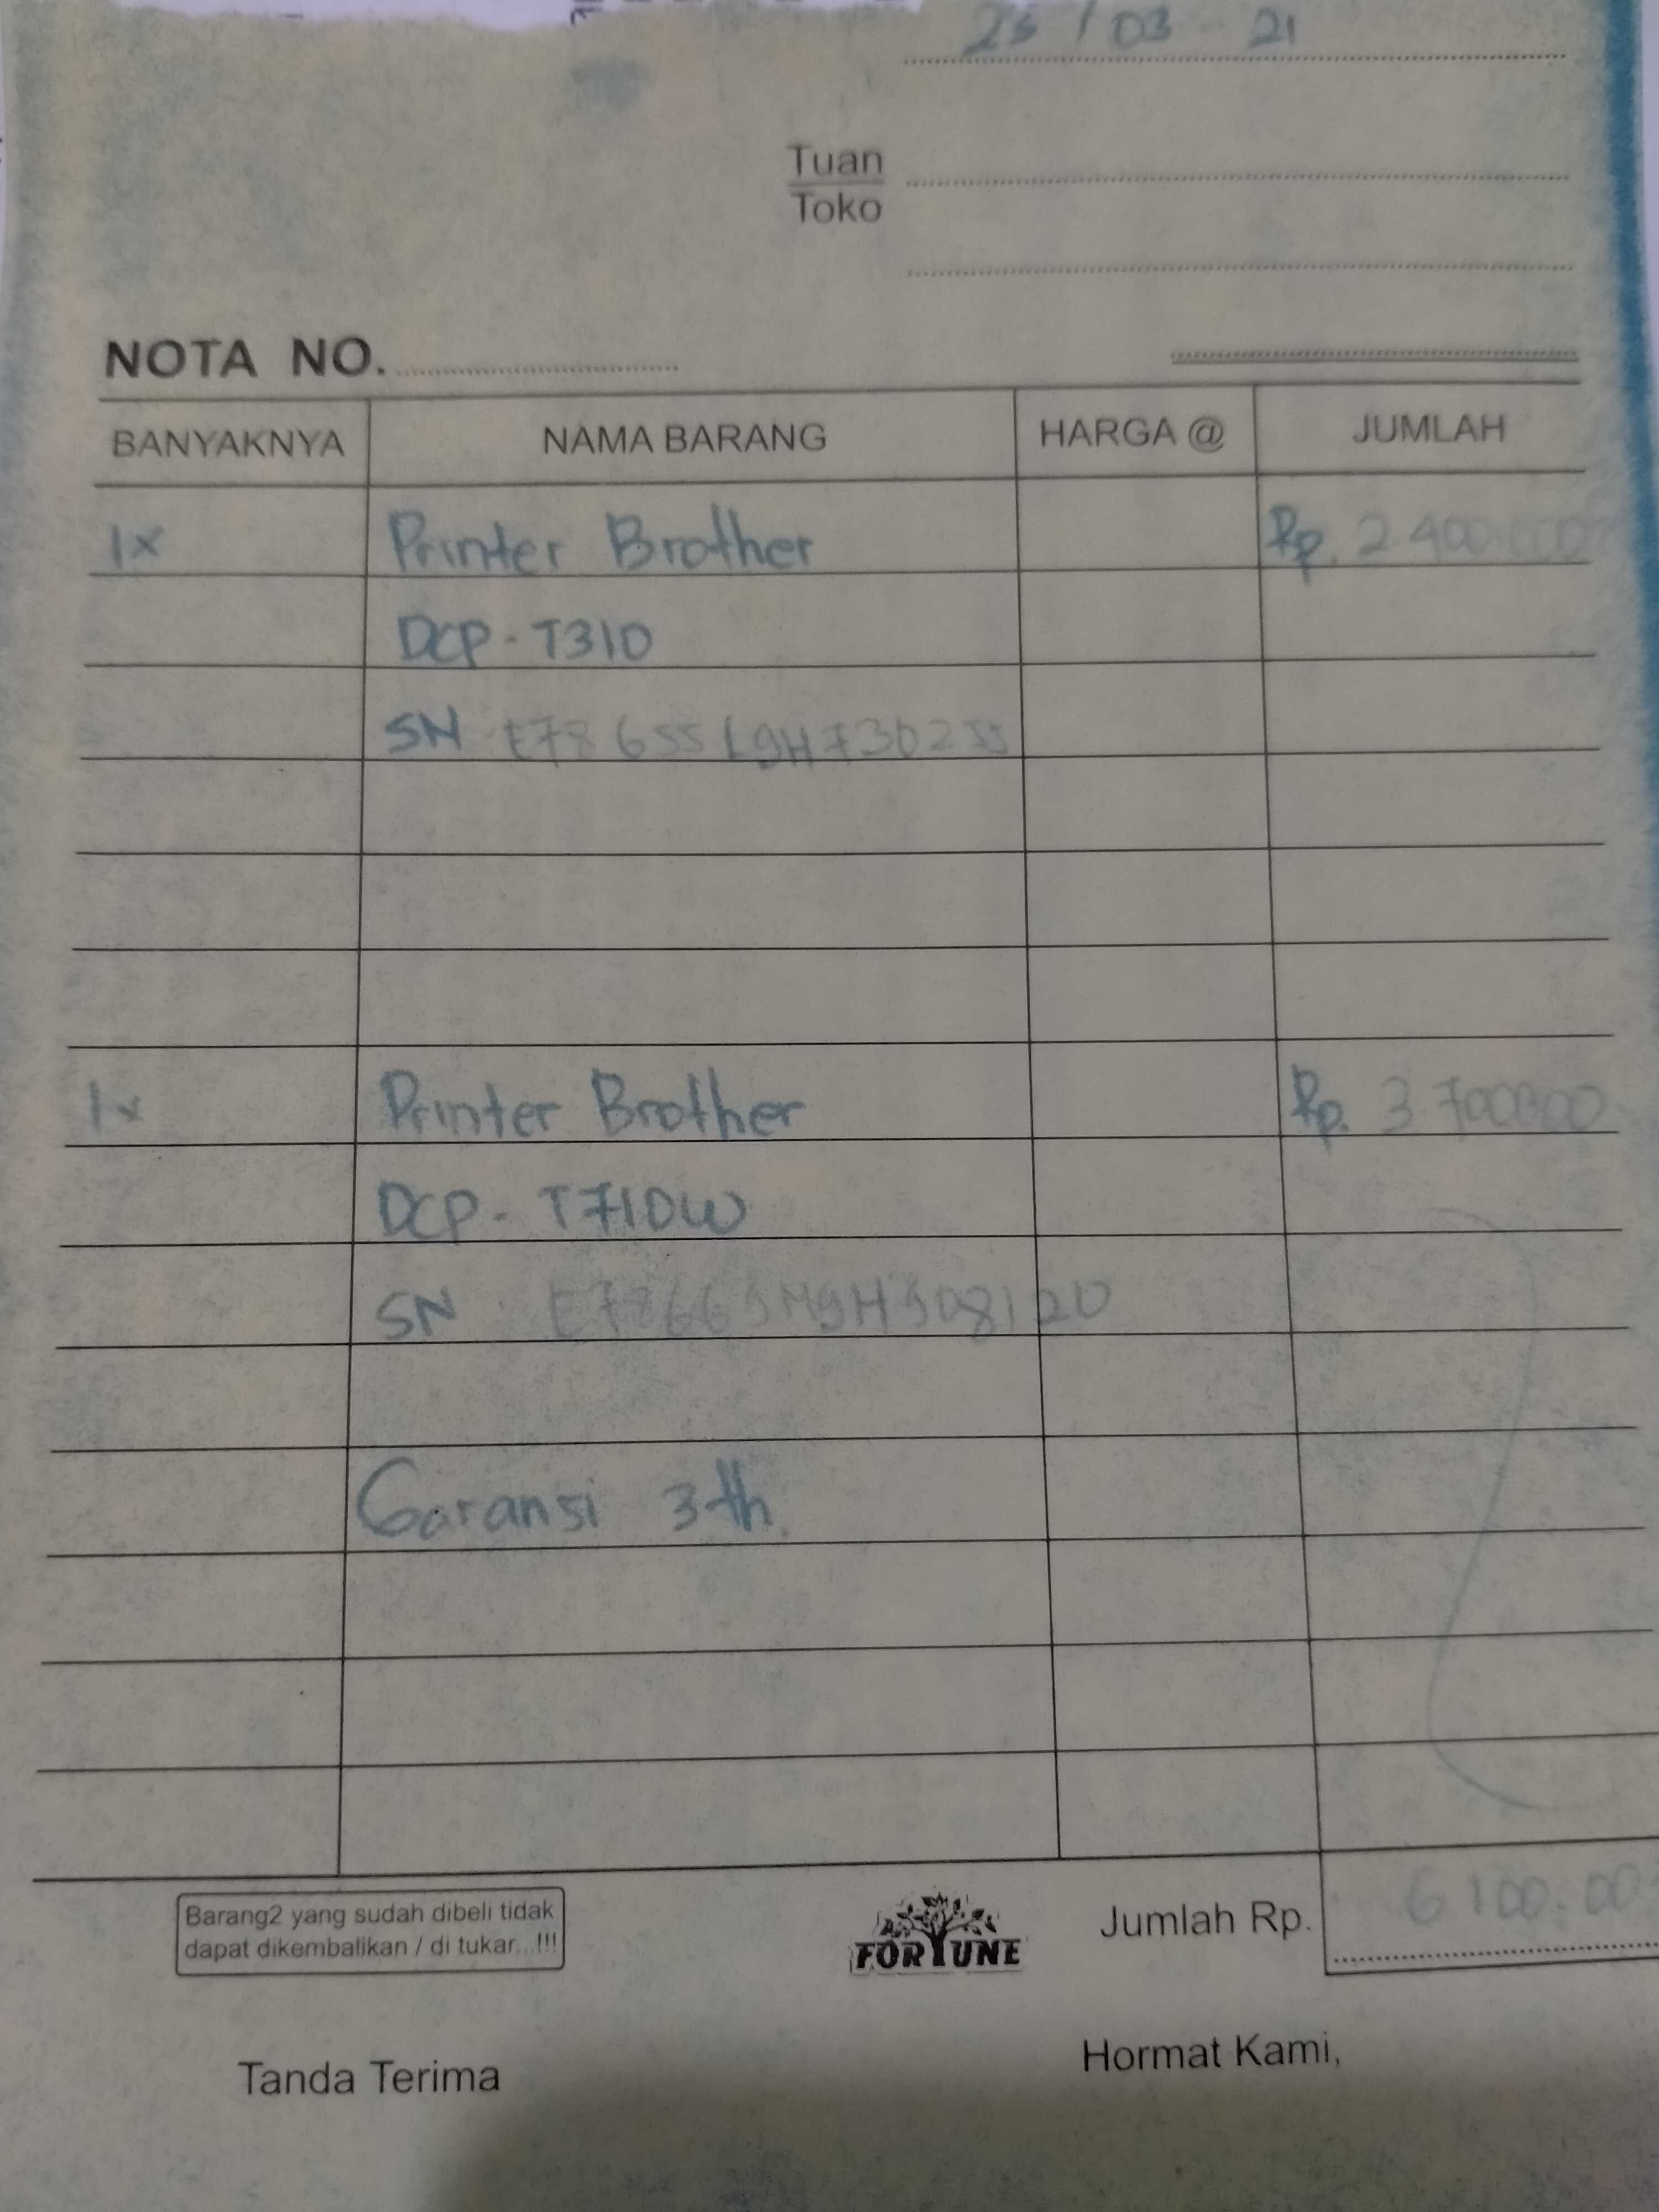 25 / 03 - 21
Tuan
Toko
NOTA NO.
BANYAKNYA NAMA BARANG HARGA @ JUMLAH
1x Printer Brother Rp. 2.400.000
DCP - T310
SN
1x Printer Brother Rp. 3.700000
DCP - T710W
SN
Garansi 3 th.
Barang2 yang sudah dibeli tidak
dapat dikembalikan / di tukar...!!!
FORTUNE
Jumlah Rp. 6 100.00
Tanda Terima Hormat Kami,